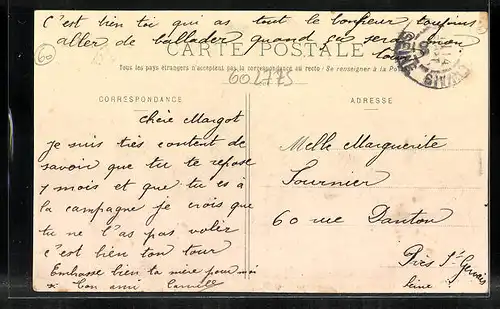 C'est bien toi qui as tout le bonheur toujours
aller de ballader quand ça sera mon
tour
60
CARTE POSTALE
Tous les pays étrangers n'acceptent pas la correspondance au recto (Se renseigner à la Poste)
602775
CORRESPONDANCE
ADRESSE
Chère Margot
Je suis très content de
savoir que tu te repose
7 mois et que tu es à
la campagne je crois que
tu ne l'as pas volée
c'est bien ton tour
Embrasse bien la mère pour moi
Ton ami Camille
Melle Marguerite
Fournier
60 rue Danton
Prés St Gervais
Seine